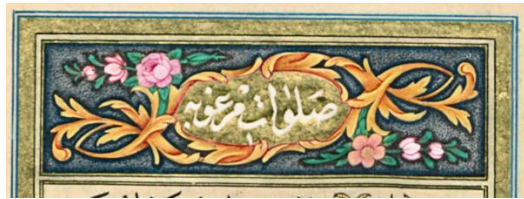 صلوات مرغنيه